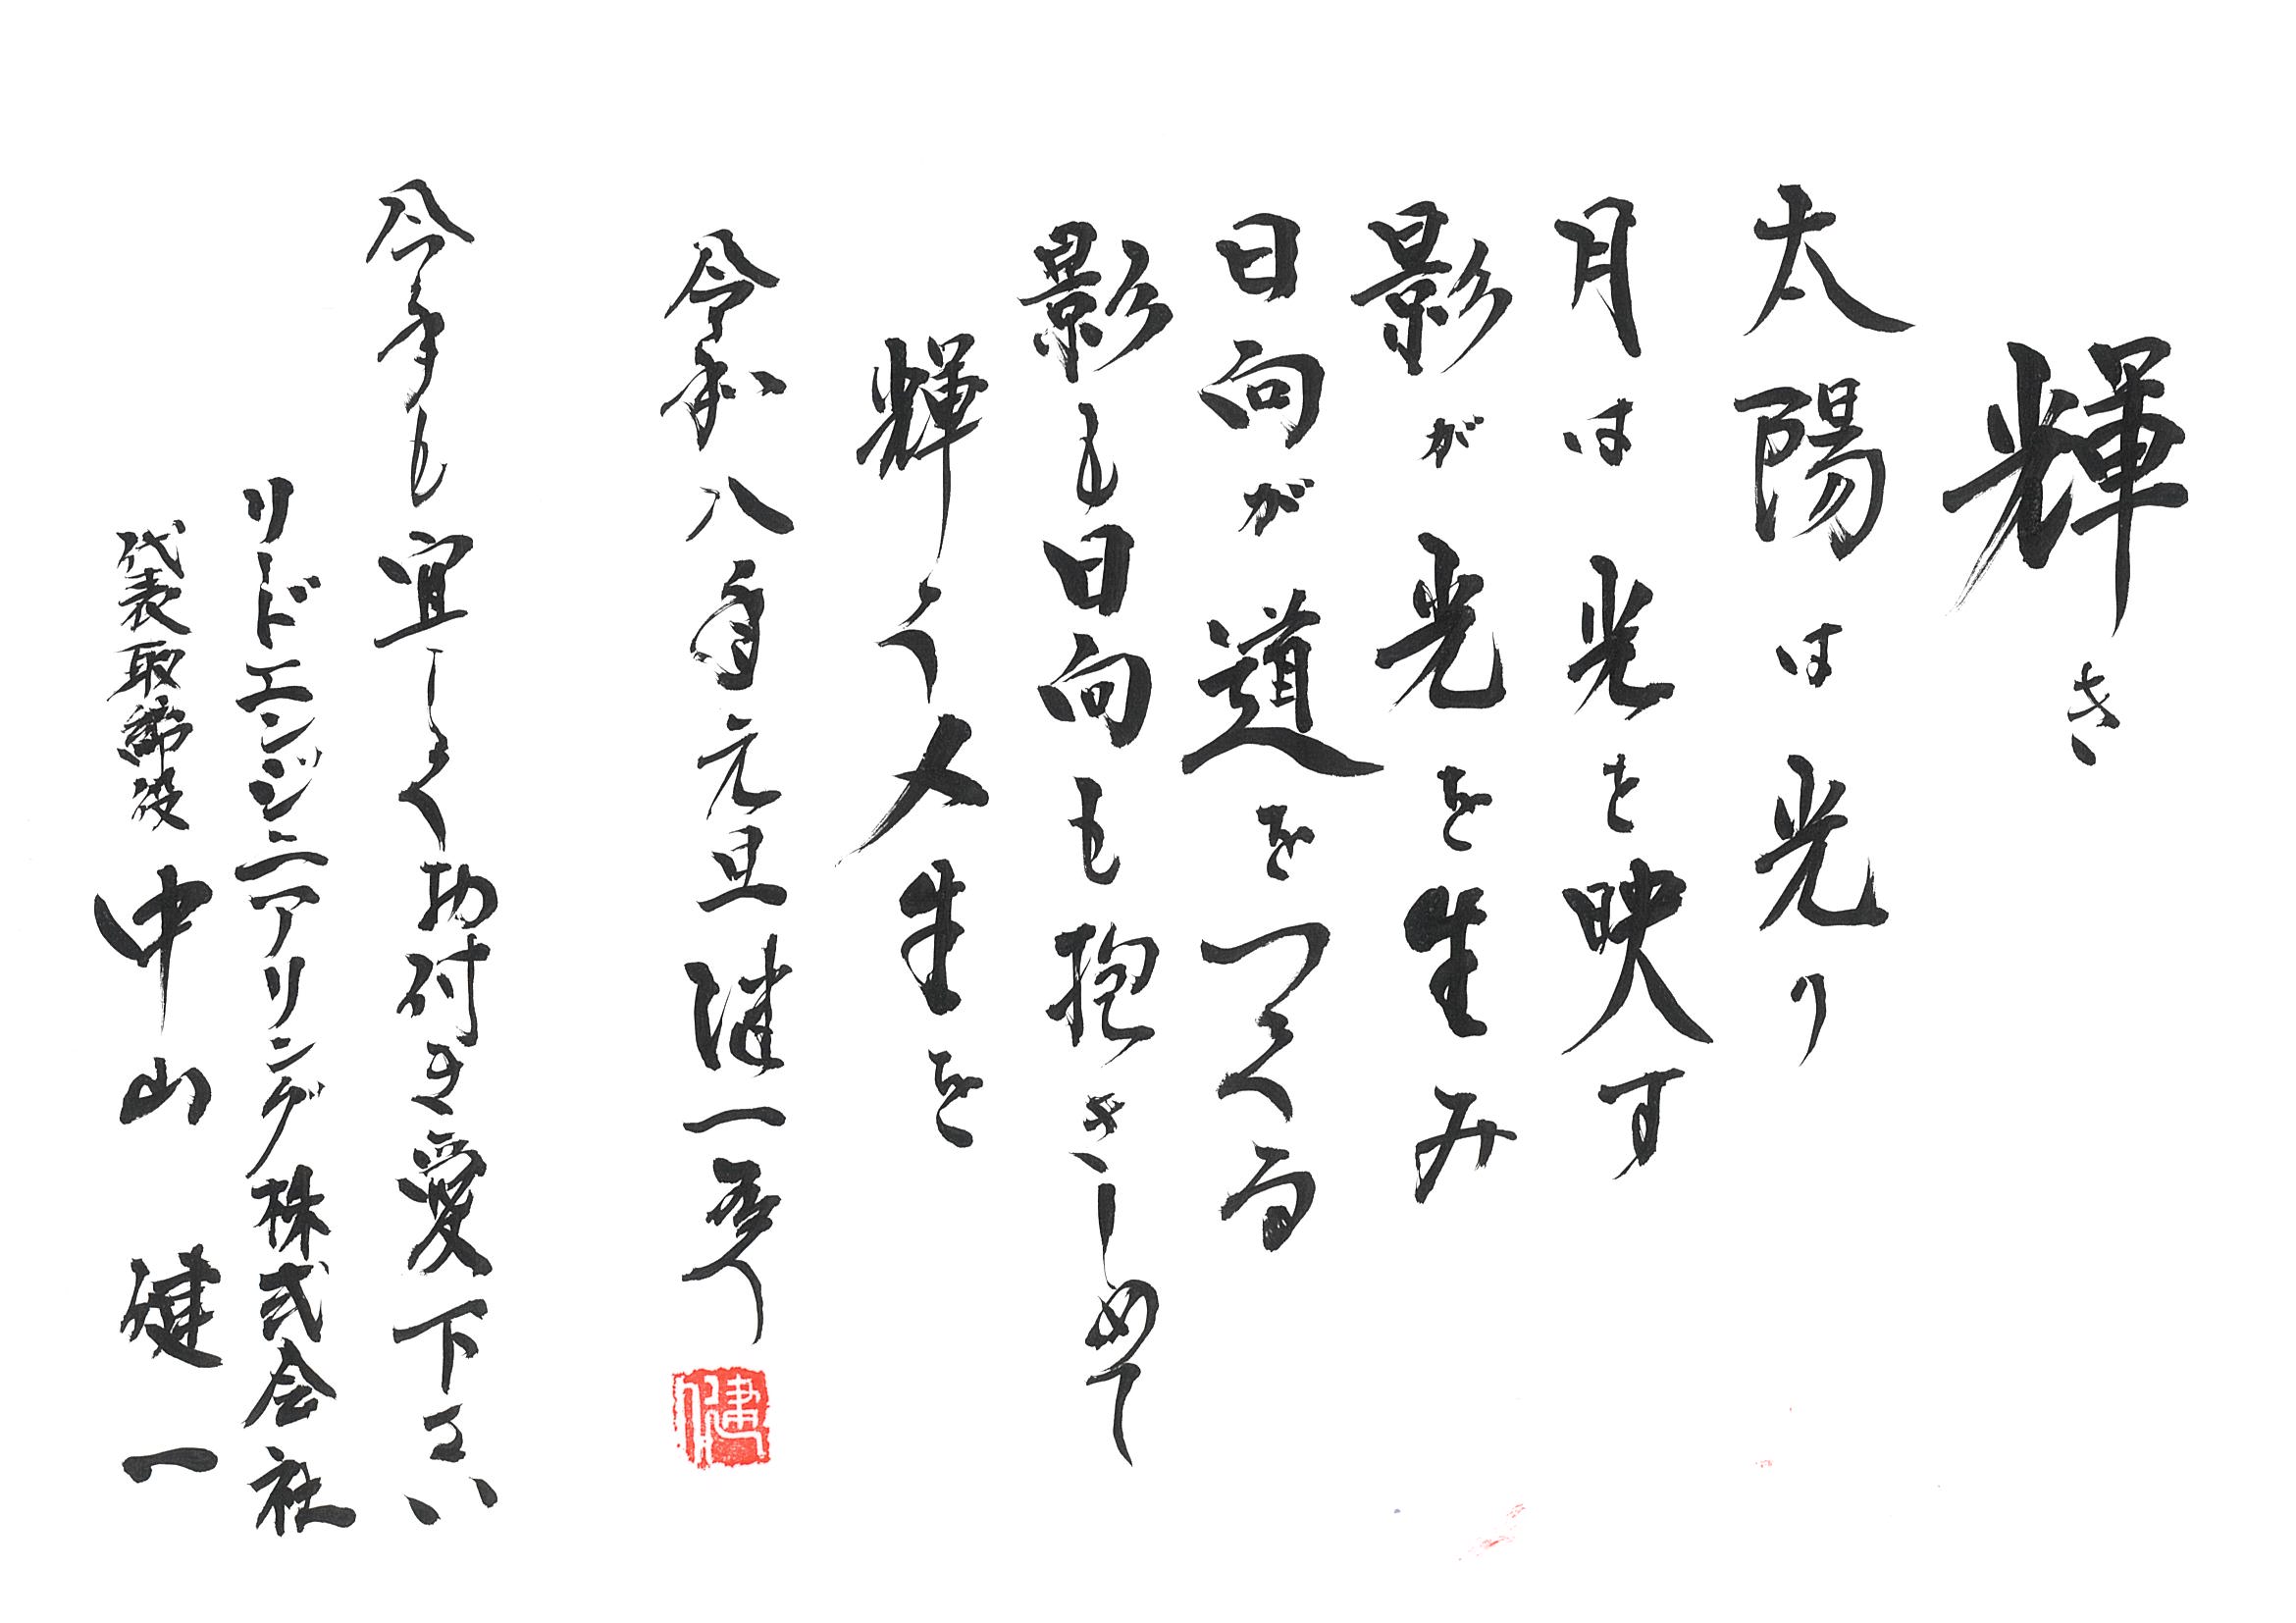 輝き
太陽は光り
月は光を映す
影が光を生み
日向が道をつくる
影も日向も抱きしめて
輝く人生を
令和八年元旦 健一
健
今年も宜しくお付き愛下さい
リードエンジニアリング株式会社
代表取締役 中山 健一